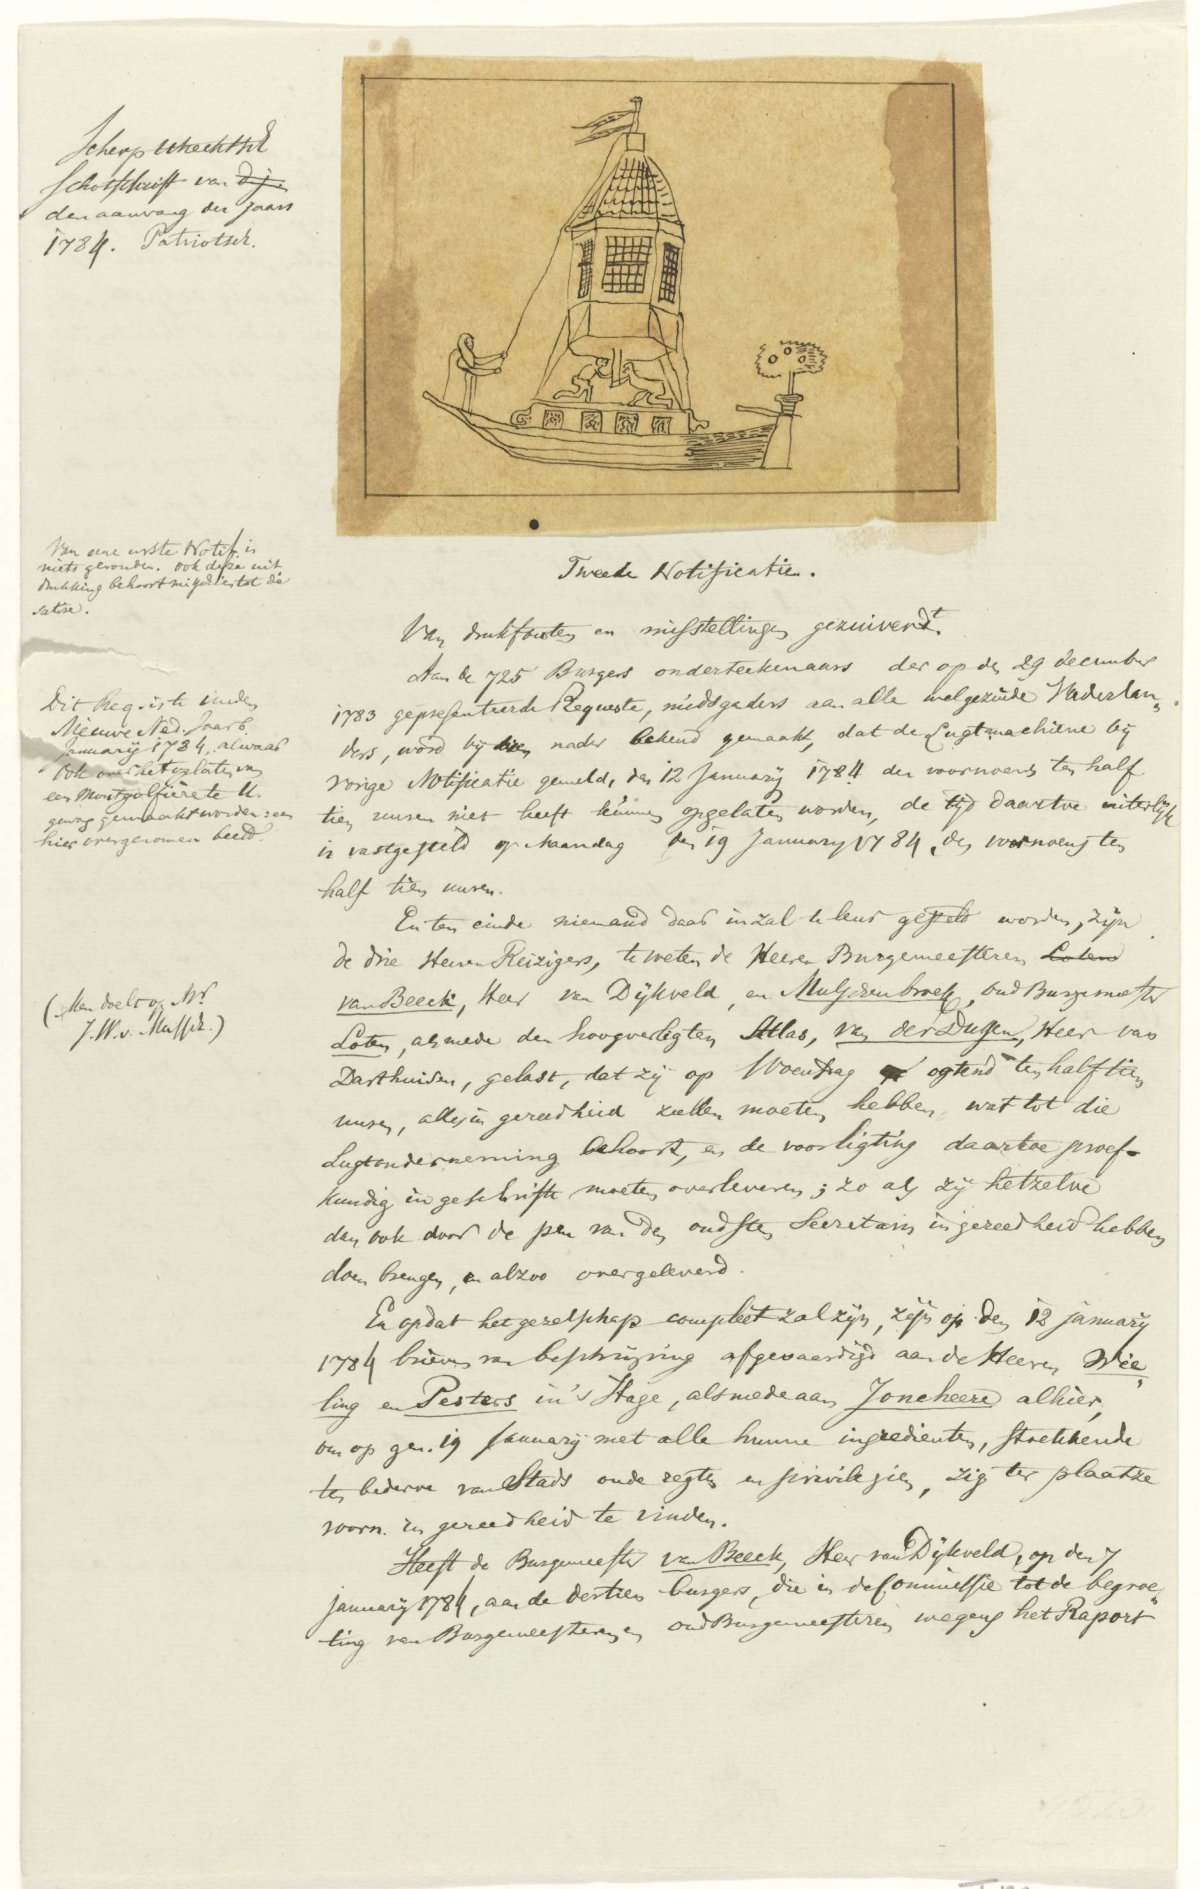 Scherp Utrechtsch
Schotschrift van
den aanvang des jaars
1784. Patriotsch.
Van eene eerste Notif. is
niets gevonden. Ook deze uit
drukking behoort misschien tot de
satire.
Dit Request e inden
Nieuwe Ned. Jaarb.
January 1784, alwaar
ook over het oplaten van
een Montgolfière te U.
gewag gemaakt worden: een
hier overgenomen beeld.
(Men doelt op Mr.
J. W. v. Musschz.)
Tweede Notificatie.
Van drukfouten en misstellingen gezuiverdt.
Aan de 725 Burgers onderteekenaars der op den 29 december
1783 gepresenteerde Requeste, midsgaders aan alle welgezinde Nederlan„
ders, word bij deze nader bekend gemaakt, dat de Lugtmachiene bij
vorige Notificatie gemeld, den 12 January 1784 des voornoens ten half
tien uuren niet heeft kunnen opgelaten worden, de tijd daartoe uiterlijk
is vastgesteld op Maandag den 19 January 1784, des voornoens ten
half tien uuren.
En ten einde niemand daar in zal te leur gesteld worden, zijn
de drie Heeren Reizigers, te weten de Heeren Burgemeesteren Loten
van Beeck, Heer van Dijkveld, en Musschenbroek, oud Burgemeester
Loten, alsmede den hoogverligten Atlas, van der Dussen, Heer van
Darthuisen, gelast, dat zij op Woensdag ogtend ten half tien
uuren, alles in gereedheid zullen moeten hebben wat tot die
Lugtonderneming behoort, en de voorligting daartoe proef-
kundig in geschrifte moeten overleveren; zo als zij hetzelve
dan ook door de pen van den oudsten Secretaris in gereedheid hebben
doen brengen, en alzoo overgeleverd.
En opdat het gezelschap compleet zal zijn, zijn op den 12 january
1784 brieven van beschrijving afgevaardigd aan de Heeren Wie„
ling en Pesters in 's Hage, alsmede aan Joncheere alhier,
om op gen. 19 January met alle hunne ingredienten, strekkende
ten bederve van Stads oude regten en privilegien, zig ter plaatze
voorn. in gereedheid te vinden.
Heeft de Burgemeester van Beeck, Heer van Dijkveld, op den 7
january 1784, aan de dertien burgers, die in de Commissie tot de begroe„
ting van Burgemeesteren en oud Burgemeesteren wegens het Raport